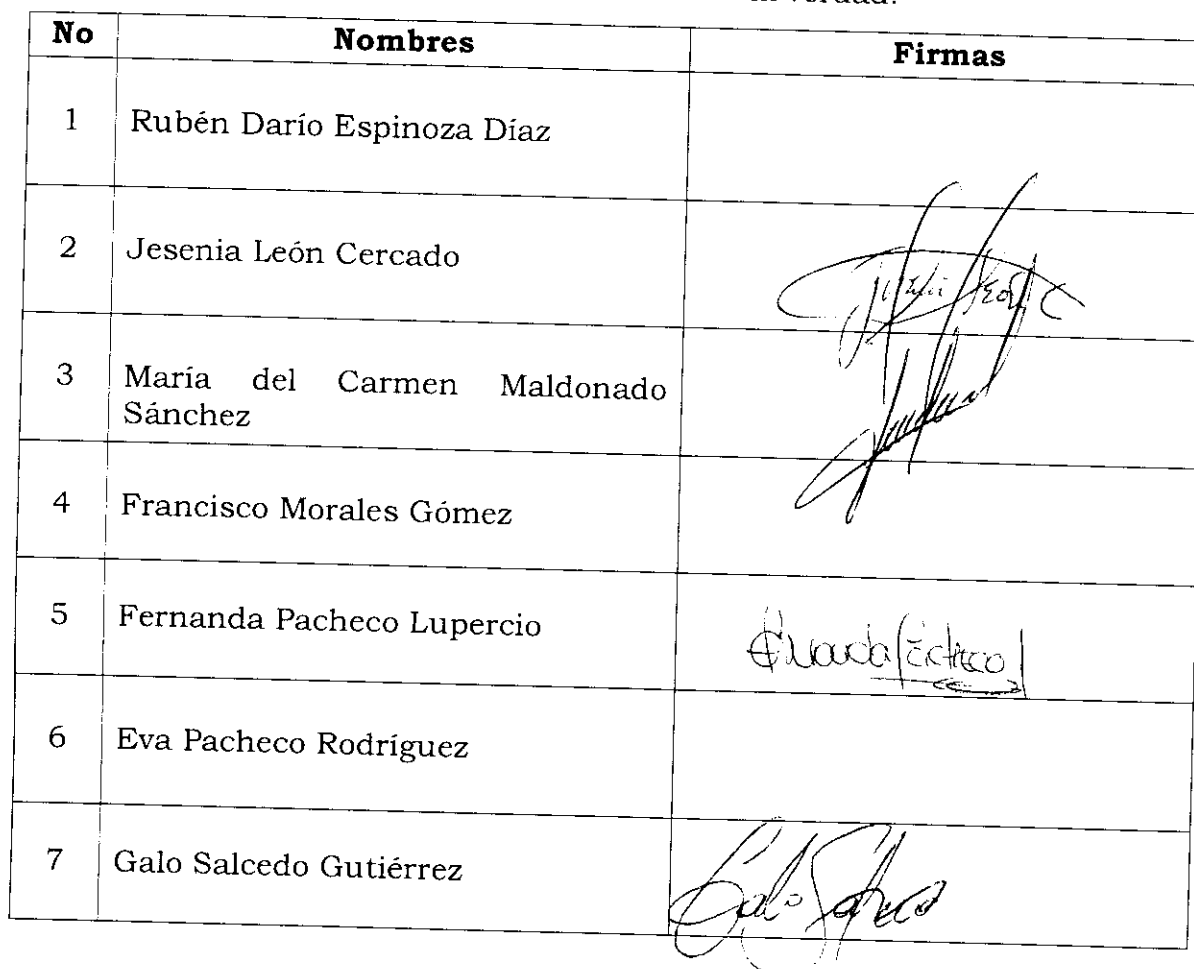 verdad.
No Nombres Firmas
1 Rubén Darío Espinoza Díaz
2 Jesenia León Cercado
3 María del Carmen Maldonado
Sánchez
4 Francisco Morales Gómez
5 Fernanda Pacheco Lupercio
6 Eva Pacheco Rodríguez
7 Galo Salcedo Gutiérrez